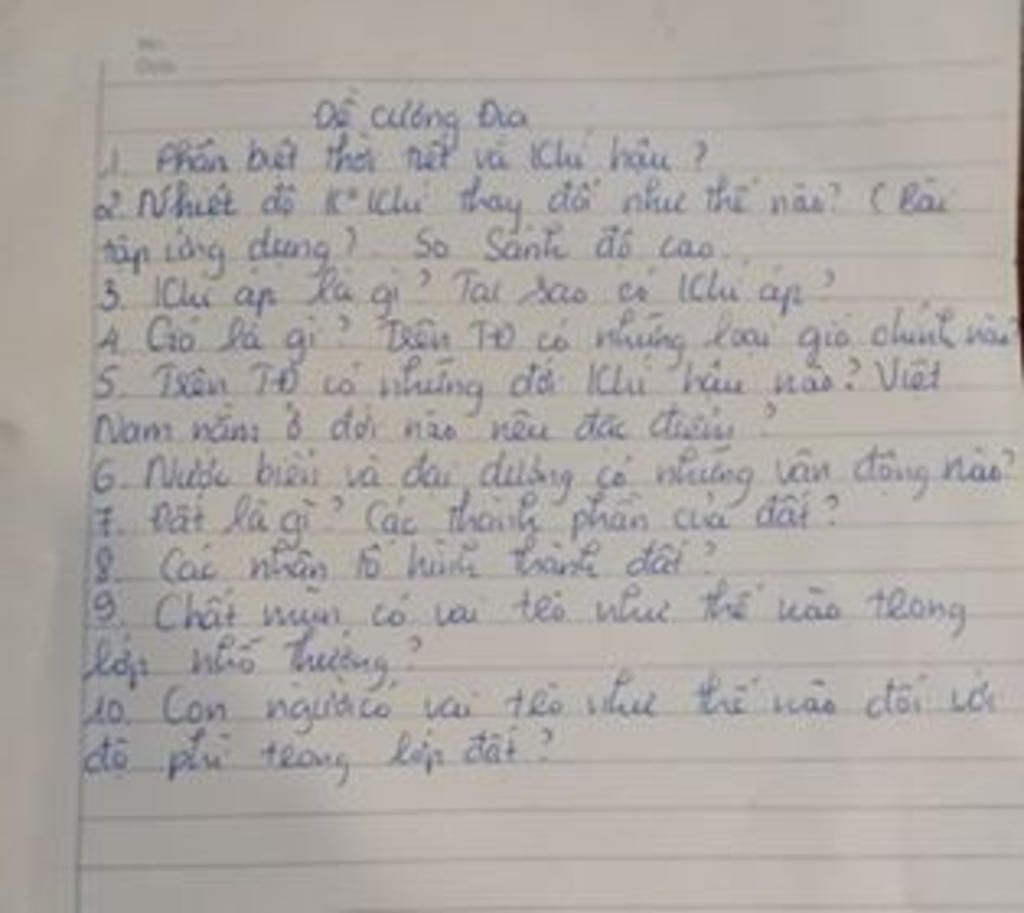 Đề cương Địa
1. Phân biệt thời tiết và Khí hậu ?
2. Nhiệt độ K° Khí thay đổi như thế nào? ( Bài
tập ứng dụng ? So Sánh độ cao.
3. Khí áp là gì ? Tại sao có Khí áp ?
4. Gió là gì ? Trên TĐ có những loại gió chính nào
5. Trên TĐ có những đới Khí hậu nào ? Việt
Nam nằm ở đới nào nêu đặc điểm ?
6. Nước biển và đại dương có những vận động nào?
7. Đất là gì ? Các thành phần của đất ?
8. Các nhân tố hình thành đất ?
9. Chất mùn có vai trò như thế nào trong
lớp nhỗ thưỡng ?
10. Con người có vai trò như thế nào đối với
độ phì trong lớp đất ?